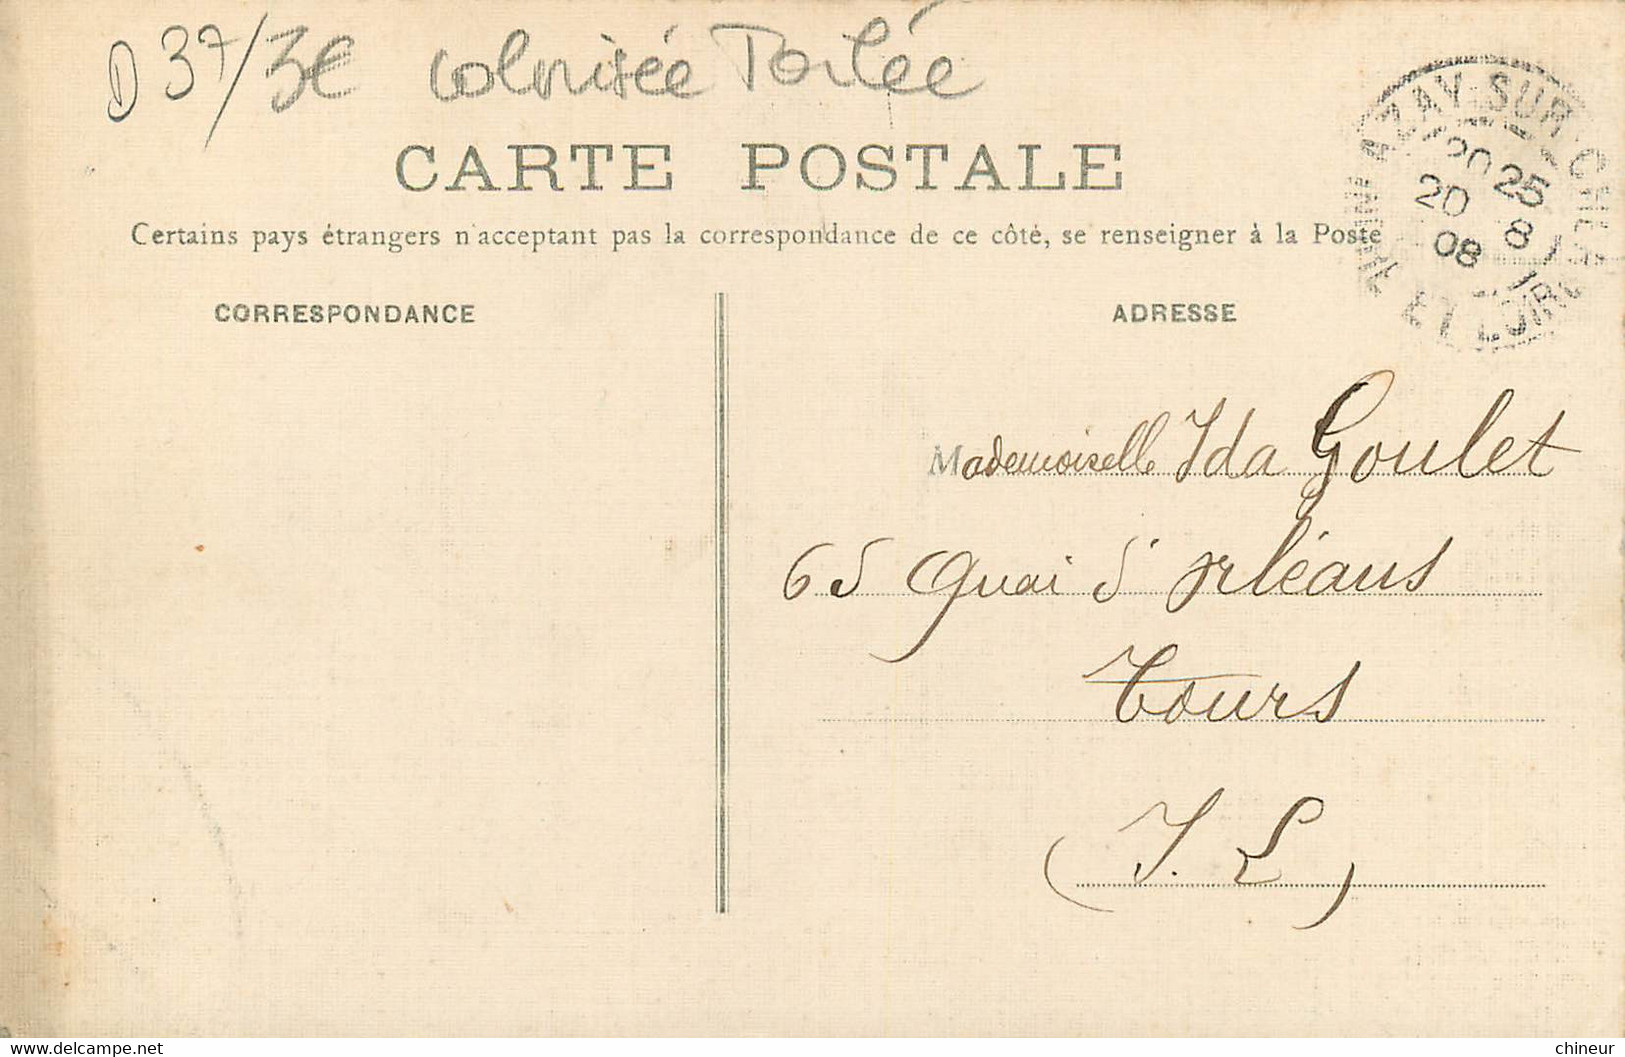 D 37/3€ colorisée Toilée
CARTE POSTALE
Certains pays étrangers n'acceptant pas la correspondance de ce côté, se renseigner à la Poste
AZAY-SUR-CHER
20 25
20 8
08
INDRE ET LOIRE
CORRESPONDANCE
ADRESSE
Mademoiselle Ida Goulet
65 Quai d'Orléans
Tours
(I. L)
www.delcampe.net
chineur